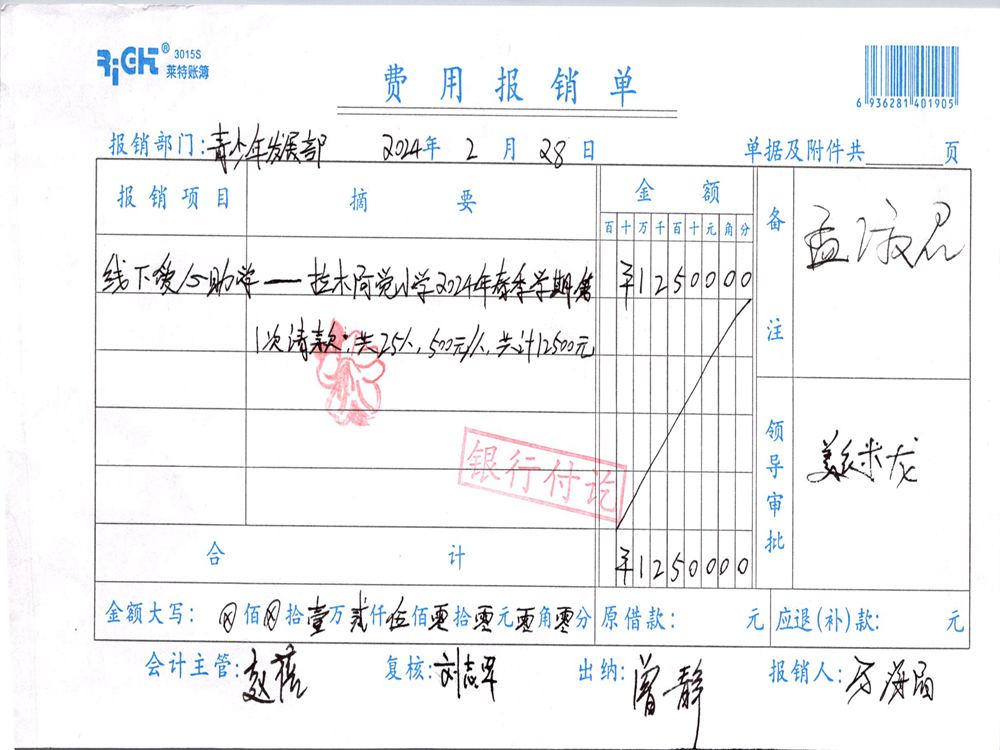 RiGHT® 3015S
莱特账簿
费用报销单
6 936281 401905
报销部门:青少年发展部 2024年 2 月 28 日 单据及附件共 页
报销项目 摘要 金额 备注
百十万千百十元角分
线下爱心助学——拉木阿觉小学2024年春季学期第 ¥1250000
1次请款:共25人,500元/人,共计12500元
银行付讫
领导审批
合计 ¥1250000
金额大写: ⊗佰⊗拾壹万贰仟伍佰零拾零元零角零分 原借款: 元 应退(补)款: 元
会计主管: 复核:刘志军 出纳:曾静 报销人: